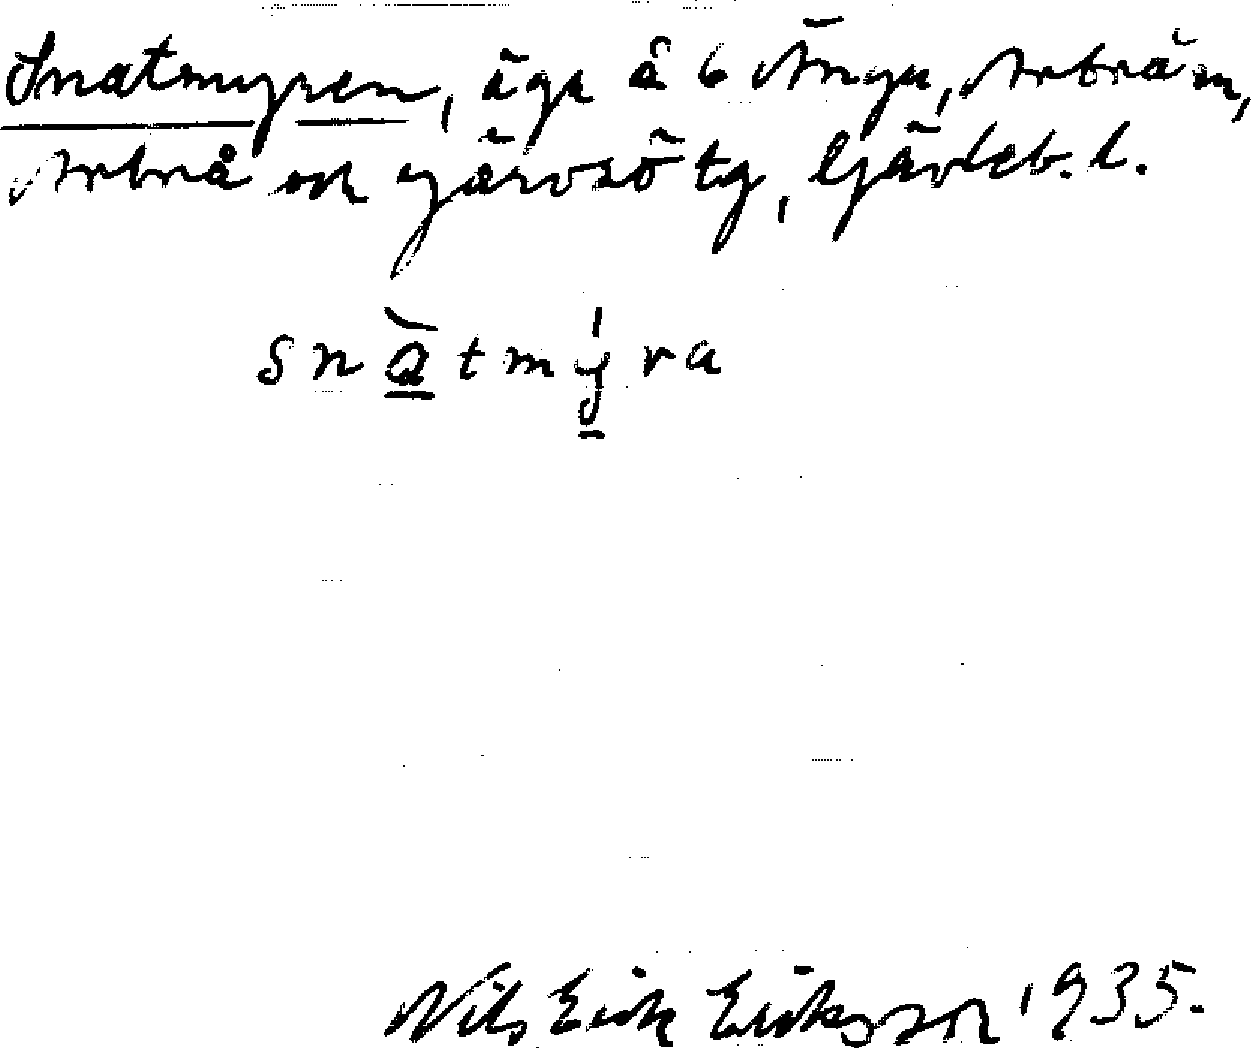 Snatmyren, äga å 6 Änga, Arbrå sn,
Arbrå och Järvsö tg, Gävleb. l.
snàtmýra
Nils Erik Eriksson 1935.